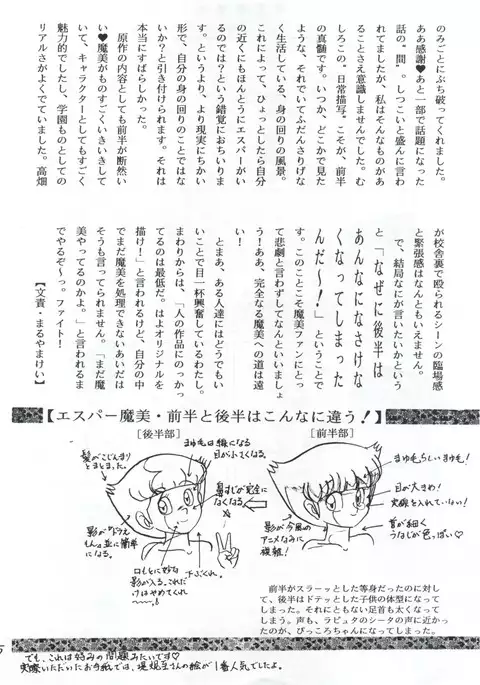 のみごとにぶち破ってくれました。
ああ感謝♥あと一部で話題になった
話の“間”。しつこいと盛んに言わ
れてましたが、私はそんなものがあ
ることさえ意識しませんでした。む
しろこの、日常描写、こそが、前半
の真髄です。いつか、どこかで見た
ような、それでいてふだんさりげな
く生活している、身の回りの風景。
これによって、ひょっとしたら自分
の近くにもほんとうにエスパーがい
るのでは?という錯覚におちいりま
す。というより、より現実にちかい
形で、自分の身の回りのことではな
いか?と引き付けられます。それは
本当にすばらしかった。
原作の内容としても前半が断然い
い♥魔美がものすごくいきいきして
いて、キャラクターとしてもすごく
魅力的でしたし、学園ものとしての
リアルさがよくでていました。高畑
が校舎裏で殴られるシーンの臨場感
と緊張感はなんともいえません。
で、結局なにが言いたいかという
と「なぜに後半は
あんなになさけな
くなってしまった
んだ〜!」ということで
す。このことこそ魔美ファンにとっ
て悲劇と言わずしてなんといいましょ
う!ああ、完全なる魔美への道は遠
い!
とまあ、ある人達にはどうでもい
いことで目一杯興奮しているわたし。
まわりからは、「人の作品にのっかっ
てるのは最低だ。はよオリジナルを
描け!」と言われるけど、自分の中
でまだ魔美を処理できないあいだは
そうも言ってられません。「まだ魔
美やってるのかよ。」と言われるま
でやるぞ〜っ。ファイト!
【文責・まるやまけい】
【エスパー魔美・前半と後半はこんなに違う!】
[後半部]
髪がこじんまり
とまとまった。
まゆ毛は線になる
目が小さくなる。
鼻すじが完全に
なくなる
影が“ドラえ
もん”並に簡単
になる。
口もとに妙な
影が入る。これだ
けはやめてくれ
〜〜〜!
下ぶくれ。
[前半部]
まゆ毛らしいまゆ毛!
目が大きめ!
実線を入れていない!
首が細く
うなじが色っぽい♡
影が今風の
アニメなみに
複雑!
前半がスラーッとした等身だったのに対し
て、後半はドテッとした子供の体型になって
しまった。それにともない足首も太くなって
しまう。声も、ラピュタのシータの声に近かっ
たのが、ぴっころちゃんになってしまった。
でも、これは好みの問題みたいです♡
実際いただいたお手紙では、現規呈さんの絵が1番人気でしたよ。